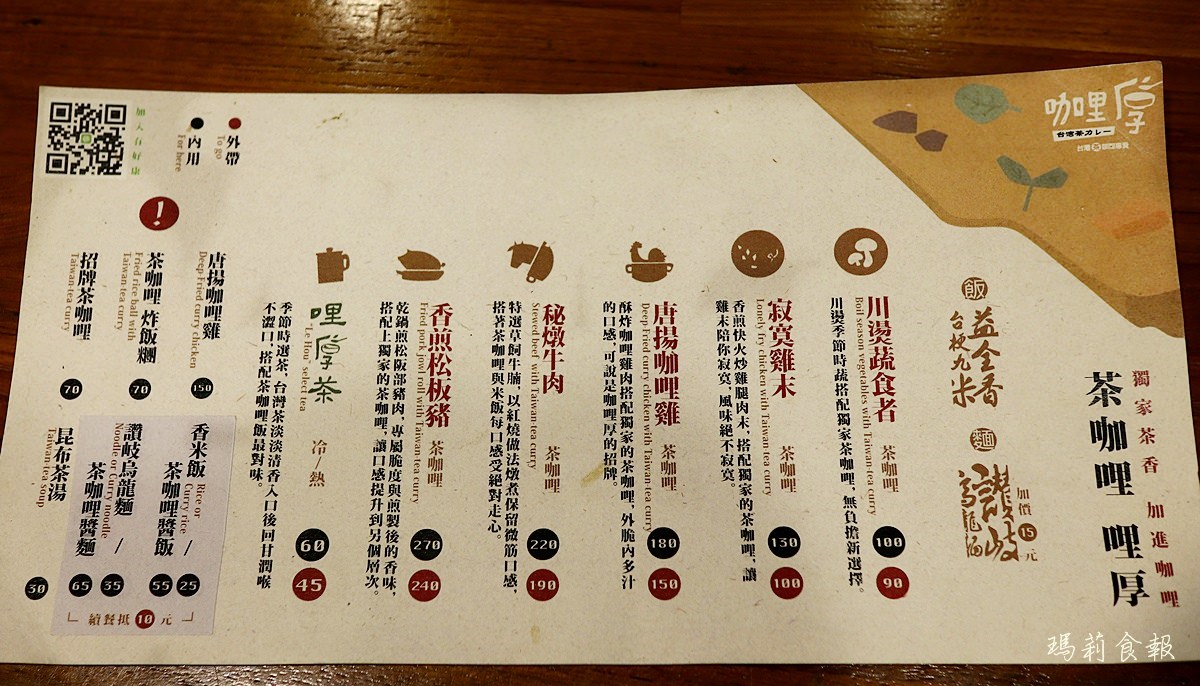 咖哩厚
台湾茶カレー
獨家茶香 加進咖哩
茶咖哩 哩厚
飯
益全香
台梗九米
麵
讚岐
烏龍麵
加價15元
川燙蔬食者 茶咖哩
Boil season vegetables with Taiwan-tea curry
川燙季節時蔬搭配獨家茶咖哩，無負擔新選擇。
100
90
寂寞雞末 茶咖哩
Lonely fry chicken with Taiwan-tea curry
香煎快火炒雞腿肉末，搭配獨家的茶咖哩，讓
雞末陪你寂寞，風味絕不寂寞。
130
100
唐揚咖哩雞 茶咖哩
Deep-Fried curry chicken with Taiwan-tea curry
酥炸咖哩雞肉搭配獨家的茶咖哩，外脆內多汁
的口感，可說是咖哩厚的招牌。
180
150
秘燉牛肉 茶咖哩
Stewed beef with Taiwan-tea curry
特選草飼牛腩，以紅燒做法燉煮保留微筋口感，
搭著茶咖哩與米飯每口感受絕對走心。
220
190
香煎松板豬 茶咖哩
Fried pork jowl roll with Taiwan-tea curry
乾鍋煎松阪部豬肉，專屬脆度與煎製後的香味，
搭配上獨家的茶咖哩，讓口感提升到另個層次。
270
240
哩厚茶 冷/熱
"Le Hou" select tea
季節時選茶，台灣茶淡淡清香入口後回甘潤喉
不澀口，搭配茶咖哩飯最對味。
60
45
外帶
To go
內用
For here
!
唐揚咖哩雞
Deep-Fried curry chicken
150
茶咖哩 炸飯糰
Fried rice ball with
Taiwan-tea curry
70
招牌茶咖哩
Taiwan-tea curry
70
香米飯 /
Rice or
Curry rice
茶咖哩醬飯
25
55
讚岐烏龍麵 /
Noodle or Curry noodle
茶咖哩醬麵
35
65
續餐抵10元
昆布茶湯
Taiwan-tea soup
30
瑪莉食報